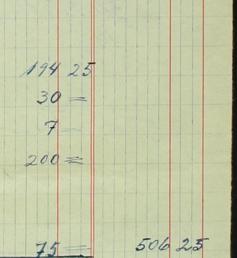 194 25
30 =
7 =
200 =
75 = 506 25